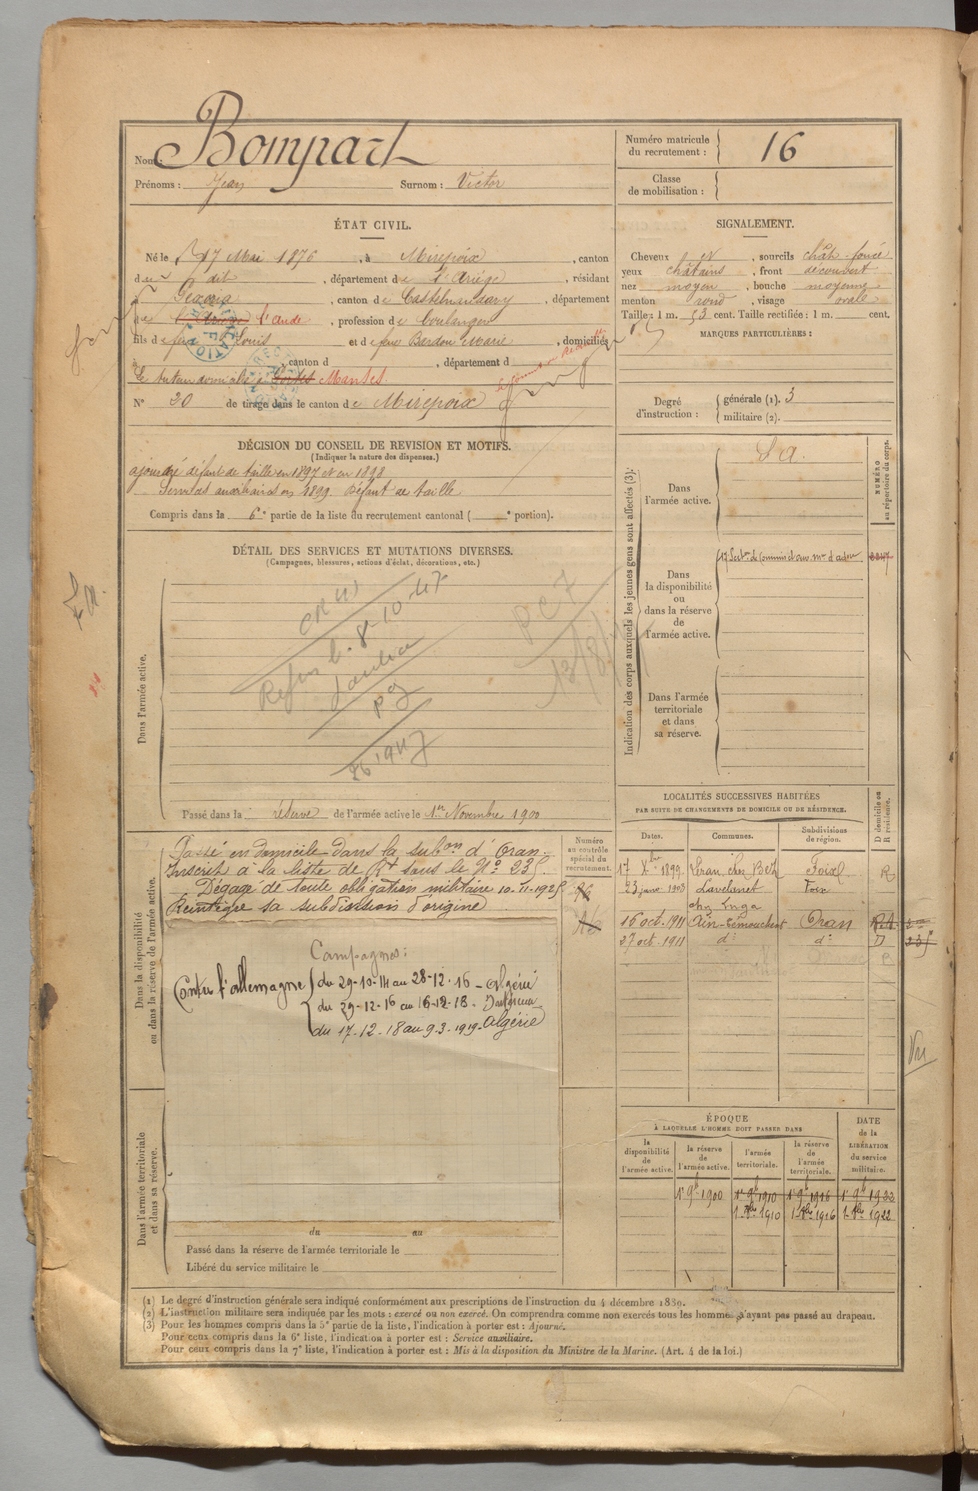 Nom : Bompart
Prénoms : Jean Surnom : Victor
Numéro matricule du recrutement : 16
Classe de mobilisation :
ÉTAT CIVIL.
Né le 17 Mai 1876, à Mirepoix, canton
du dit, département de l'Ariège, résidant
, canton de Castelnaudary, département
de l'Aude, profession de boulanger
fils de feu Louis et de feue Bardou Marie, domiciliés
à , canton d , département d
Le tuteur domicilié à Manses
N° 20 de tirage dans le canton de Mirepoix
SIGNALEMENT.
Cheveux et, sourcils chât. foncé
yeux châtains, front découvert
nez moyen, bouche moyenne
menton rond, visage ovale
Taille : 1 m. 53 cent. Taille rectifiée : 1 m. cent.
MARQUES PARTICULIÈRES :
Degré d'instruction : générale (1). 3
militaire (2).
DÉCISION DU CONSEIL DE REVISION ET MOTIFS.
(Indiquer la nature des dispenses.)
ajourné défaut de taille en 1897 et en 1898
Services auxiliaires en 1899. Défaut de taille
Compris dans la 6e partie de la liste du recrutement cantonal ( e portion).
DÉTAIL DES SERVICES ET MUTATIONS DIVERSES.
(Campagnes, blessures, actions d'éclat, décorations, etc.)
Dans l'armée active.
8-10-47
1947
Passé dans la réserve de l'armée active le 1er Novembre 1900
Dans la disponibilité ou dans la réserve de l'armée active.
Passé en domicile dans la subon d'Oran.
Inscrit à la liste de Rt sous le No 235.
Dégagé de toute obligation militaire 10-11-1925
Réintègre sa subdivision d'origine
Numéro au contrôle spécial du recrutement.
Campagnes :
Contre l'allemagne du 29-10-14 au 28-12-16 - algérie
du 29-12-16 au 16-12-18 - Intérieur
du 17-12-18 au 9-3-1919 - Algérie
Dans l'armée territoriale et dans sa réserve.
du au
Passé dans la réserve de l'armée territoriale le
Libéré du service militaire le
Indication des corps auxquels les jeunes gens sont affectés (3) :
NUMÉRO au répertoire du corps.
Dans l'armée active.
S a.
Dans la disponibilité ou dans la réserve de l'armée active.
17 Secton de commis et ouv. mre d'adon
Dans l'armée territoriale et dans sa réserve.
LOCALITÉS SUCCESSIVES HABITÉES
PAR SUITE DE CHANGEMENTS DE DOMICILE OU DE RÉSIDENCE.
Dates. Communes. Subdivisions de région. D domicile ou R résidence.
17 Xbre 1899 Léran, chez Foix R
23 janv 1903 Lavelanet Foix
chez
16 oct. 1911 Aïn-Témouchent Oran
27 oct. 1911 d° d° D
Vu
ÉPOQUE
À LAQUELLE L'HOMME DOIT PASSER DANS
la disponibilité de l'armée active. la réserve de l'armée active. l'armée territoriale. la réserve de l'armée territoriale.
DATE de la LIBÉRATION du service militaire.
1er 9b 1900 1er 9b 1910 1er 9b 1916 1er 9b 1922
1910 1916 1922
(1) Le degré d'instruction générale sera indiqué conformément aux prescriptions de l'instruction du 4 décembre 1889.
(2) L'instruction militaire sera indiquée par les mots : exercé ou non exercé. On comprendra comme non exercés tous les hommes n'ayant pas passé au drapeau.
(3) Pour les hommes compris dans la 5e partie de la liste, l'indication à porter est : Ajourné.
Pour ceux compris dans la 6e liste, l'indication à porter est : Service auxiliaire.
Pour ceux compris dans la 7e liste, l'indication à porter est : Mis à la disposition du Ministre de la Marine. (Art. 4 de la loi.)